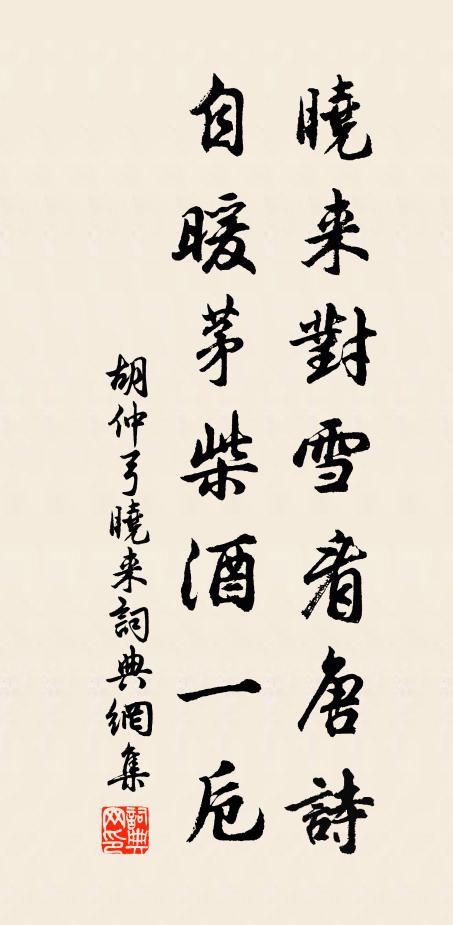 曉来對雪看唐詩
自暖茅柴酒一卮
胡仲弓曉来詞典網集
詞典网印